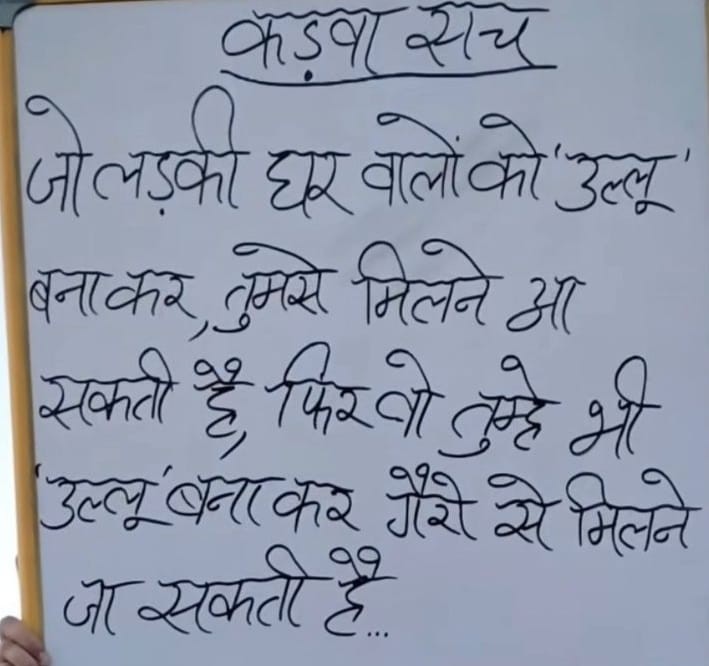 कड़वा सच
जो लड़की घर वालों को 'उल्लू'
बनाकर, तुमसे मिलने आ
सकती है, फिर वो तुम्हे भी
'उल्लू' बनाकर गैरो से मिलने
जा सकती है...